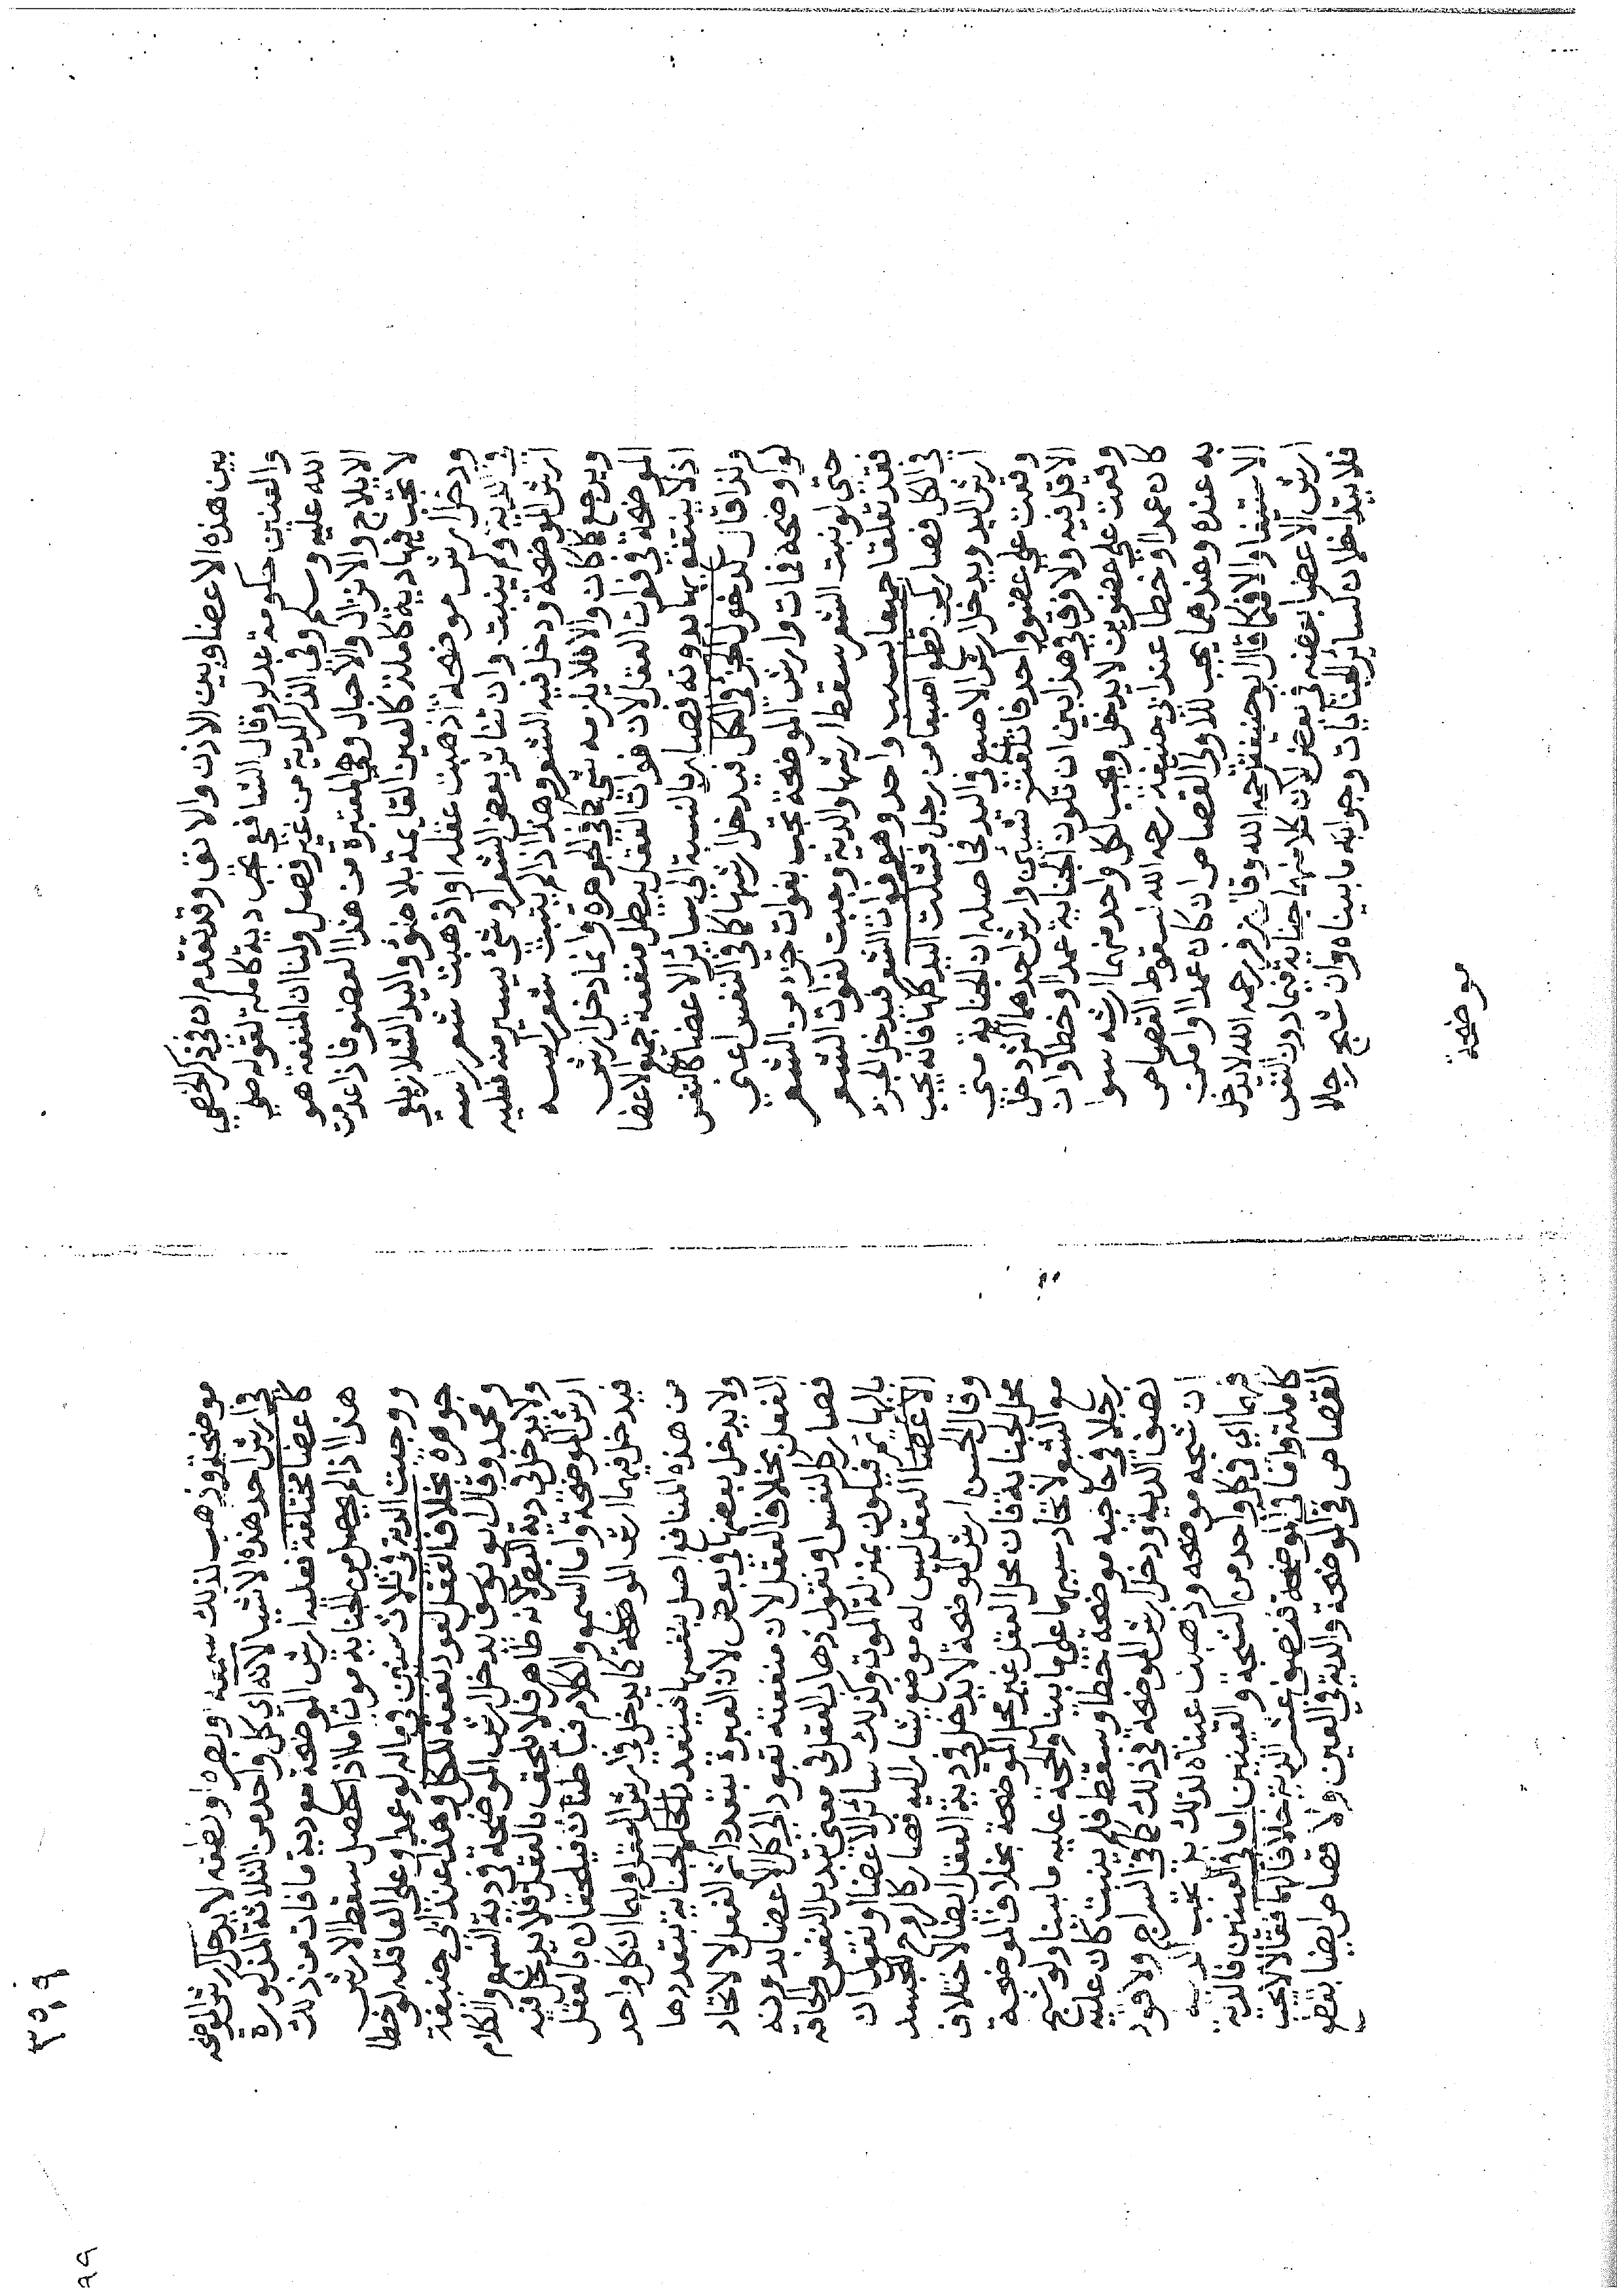 بين هذه الاعضا وبين الاذن والانف وقد تقدم ان في ذكر الخصي
والعنين حكومة عدل وقال الشافعي تجب دية كاملة لقوله صلي
الله عليه وسلم وفي الذكر الدية من غير فصل ولنا ان المنفعة هو
الايلاج والانزال والاحبال وهي المعتبرة من هذا العضو فاذا عدمت
لا تجب فيها دية كاملة كالعين القايمة بلا ضوء واليد الشلا زيلعي
ودخل ارش موضحة اذهبت عقله او اذهبت شعر راسه
في الدية ولم ينبت وان تناثر بعض الشعر او شي يسير منه فعليه
ارش الموضحة ودخل فيه الشعر وهذا اذا لم ينبت شعر راسه
ويرجع كما كان والا فلا يلزمه شي كما في الجوهرة وانما دخل ارش
الموضحة في فوات العقل لان فوات العقل يبطل منفعة جميع الاعضا
اذ لا ينتفع بها بدونه فصار بالنسبة الي سائر الاعضا كالنفس
ولذا قال كدخول الجزء في الكل فيدخل ارشها كما في النفس اعني
لو اوضحه فمات وارش الموضحة تجب بفوات جزء من الشعر
حتي لو نبت الشعر سقط ارشها والدية وجبت لفوات الشعر
فقد تعلقا جميعا بسبب واحد وهو فوات الشعر فيدخل الجزء
في الكل فصار كمن قطع اصبعا من رجل فشلت اليد كلها فانه يجب
ارش اليد ويدخل ارش الاصبع في اليد فحاصله ان الجناية متي
وقعت علي عضو واحد فاتلفت شيئين وارش احدهما اكثر دخل
الاقل فيه ولا فرق في هذا بين ان تكون الجناية عمدا او خطا وان
وقعت علي عضوين لا يدخل ويجب لكل واحد منهما ارشه سوا
كان عمدا او خطا عند ابي حنيفة رحمه الله لسقوط القصاص
به عنده وعندهما يجب للاول القصاص ان كان عمدا وامكن
الاستيفا والا فكما قال ابو حنيفة رحمه الله وقال زفر رحمه الله لا يدخل
ارش الاعضا بعضه في بعض لان كلا منهما جناية فيما دون النفس
فلا يتداخلان كسائر الجنايات وجوابه ما بيناه وان شج رجلا
موضحة
موضحة وذهب لذلك سمعه وبصره او نطقه لا يدخل ارش الموضحة
في ارش احد هذه الاشيا لانه اي كل واحد من الثلاثة المذكورة
كاعضا مختلفة فعليه ارش الموضحة مع دية ما فات من ذلك
هذا اذا لم يحصل من الجناية موت اما اذا حصل سقط الارش
ووجبت الدية في ثلاث سنين في ماله لو عمدا وعلي العاقلة لو خطا
جوهرة بخلاف العقل لعود نفعه للكل وهذا عند ابي حنيفة
ومحمد وقال ابو يوسف يدخل ارش الموضحة في دية السمع والكلام
ولا يدخل في دية البصر لانه ظاهر فلا يلحق بالعقل فلا يدخل فيه
ارش الموضحة واما السمع والكلام فباطنان فيلحقان بالعقل
فيدخل فيهما ارش الموضحة كما يدخل في ارش العقل ولهما ان كل واحد
من هذه المنافع اصل بنفسها فيتعدد حكم الجناية بتعددها
ولا يدخل بعضها في بعض لان العبرة بتعدد اثر الفعل لا لاتحاد
الفعل بخلاف العقل لان منفعته تعود الي كل الاعضا بدونه
فصار كالنفس او نقول ذهاب العقل في معني تبديل النفس والحاقه
بالبهائم فيكون بمنزلة الموت ولا كذلك سائر الاعضا او نقول ان
الاعضا العقل ليس له موضع يشار اليه فصار كالروح للجسد
وقال الحسن ارش الموضحة لا يدخل في دية العقل ايضا لاختلاف
محل الجناية فان محل العقل غير محل الموضحة بخلاف الموضحة
مع الشعر لاتحاد سببهما علي ما بينا والحجة عليه ما بينا ولو شج
رجلا في حاجبه موضحة خطا وسقط فلم ينبت كان عليه
نصف الدية ودخل ارش الموضحة في ذلك كما في السراج ولا قود
ان شجه موضحة وذهبت عيناه لذلك بل تجب الدية
فيهما اي في كل واحد من الشجة والعينين اما في العينين فالدية
كاملة واما في الموضحة فنصف عشر الدية خلافا لهما فقالا يجب
القصاص في الموضحة والدية في العين ولا قصاص ايضا بقطع
٩٩